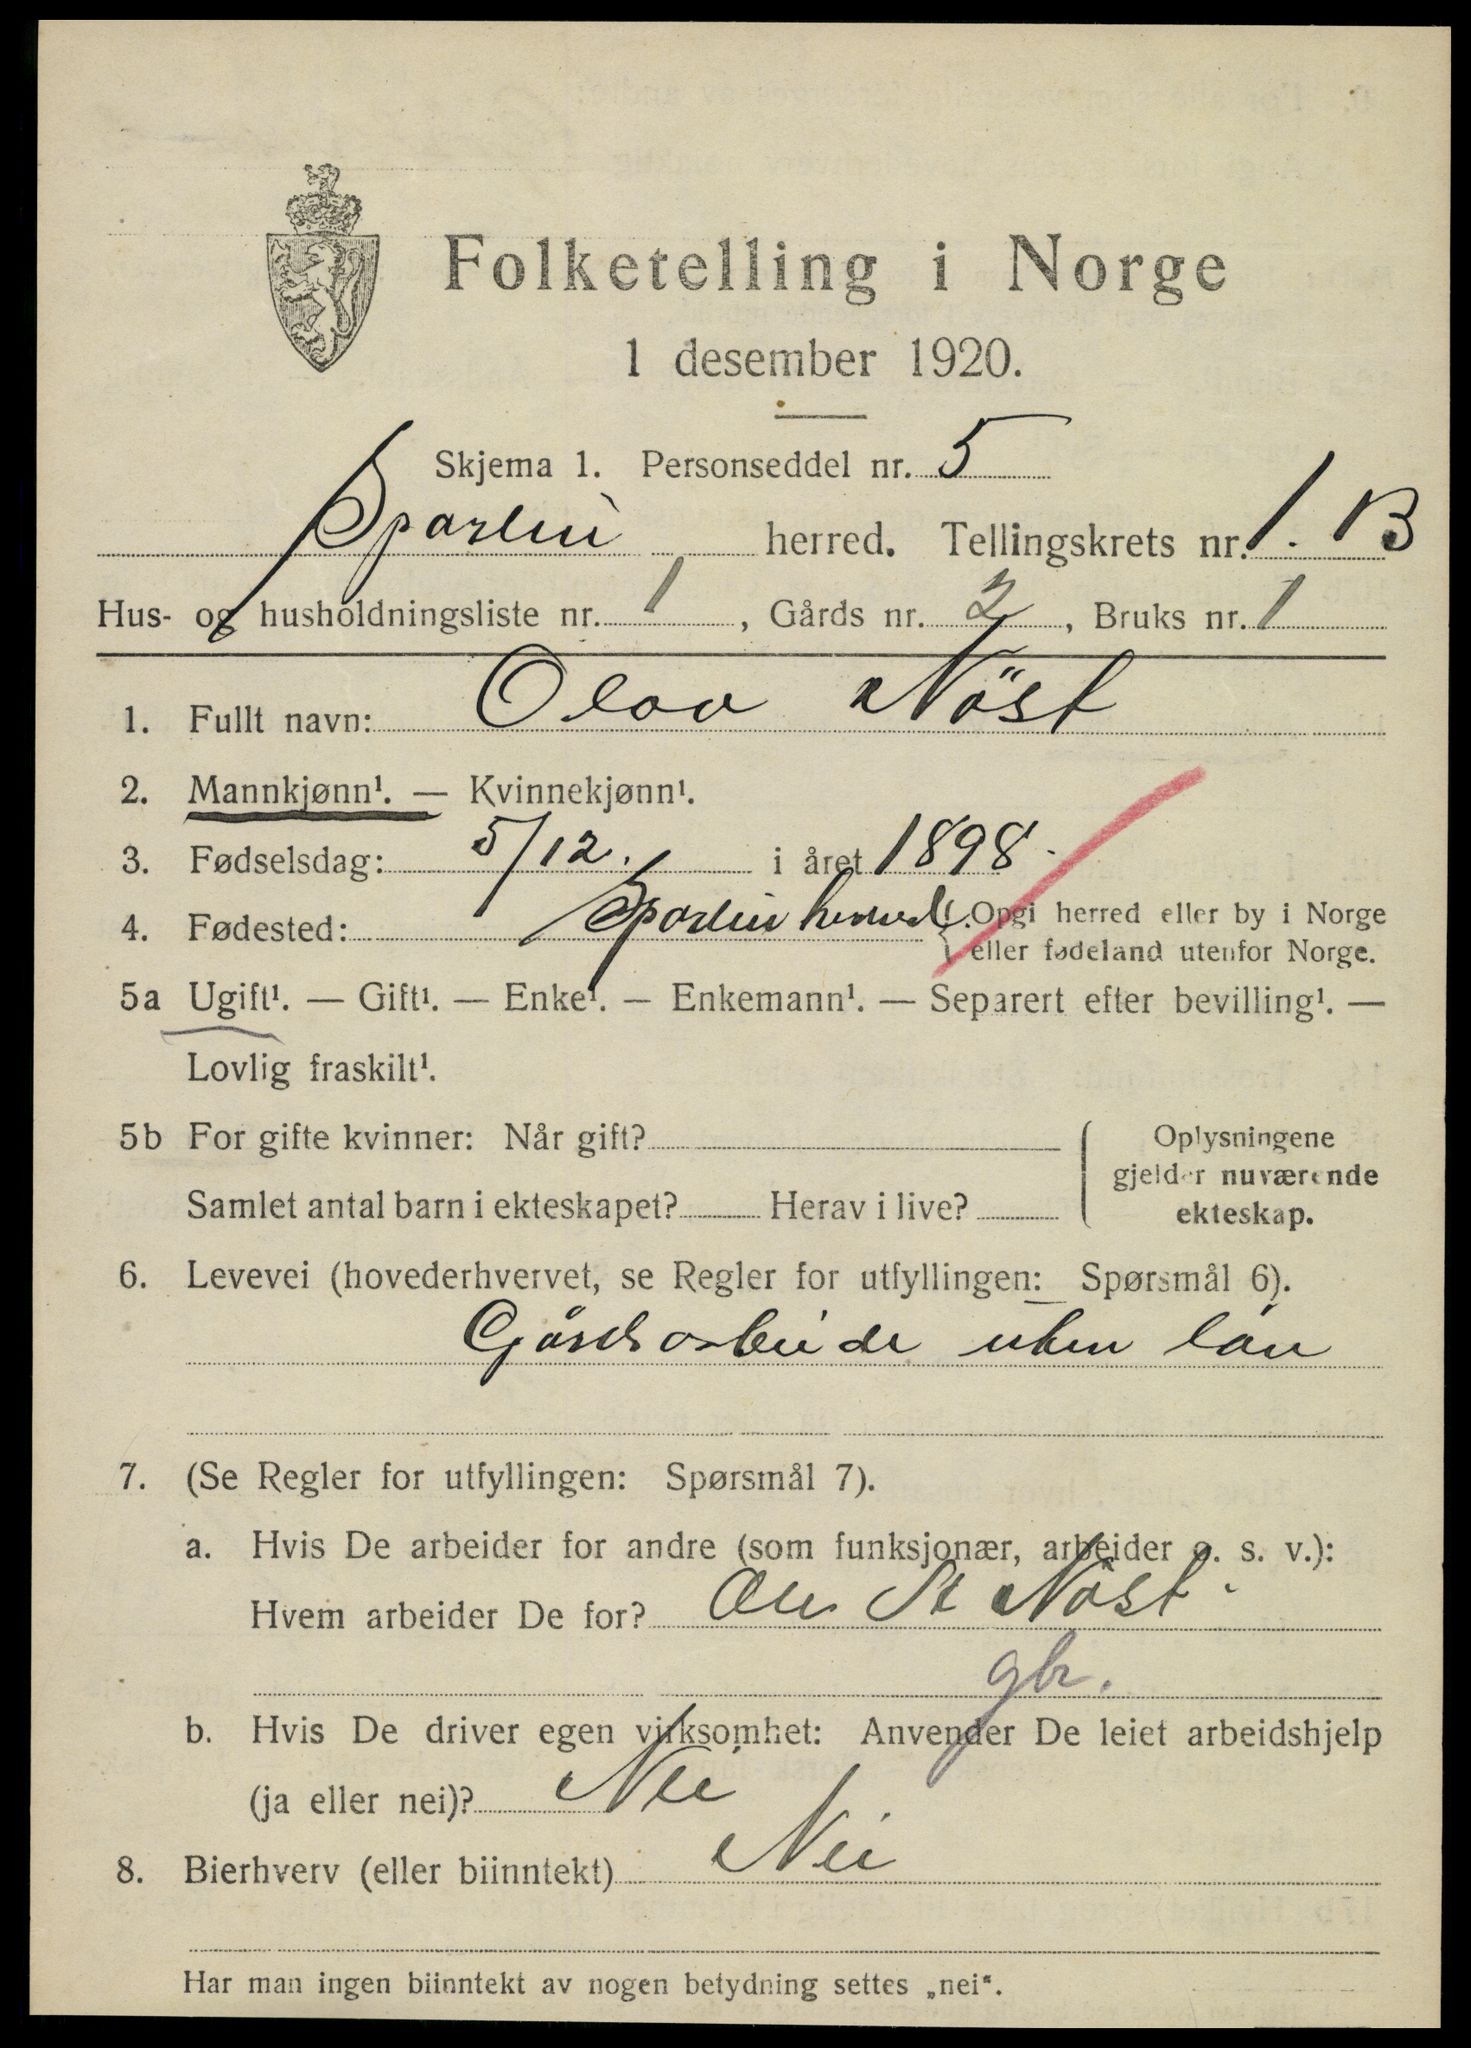 Folketelling i Norge
1 desember 1920.
Skjema 1. Personseddel nr. 5
Sparbu herred. Tellingskrets nr. 1. B
Hus- og husholdningsliste nr. 1, Gårds nr. 2, Bruks nr. 1
1. Fullt navn: Olav Nöst
2. Mannkjønn¹. — Kvinnekjønn¹.
3. Fødselsdag: 5/12. i året 1898.
4. Fødested: herred { Opgi herred eller by i Norge
eller fødeland utenfor Norge.
5a Ugift¹. — Gift¹. — Enke¹. — Enkemann¹. — Separert efter bevilling¹. —
Lovlig fraskilt¹.
5b For gifte kvinner: Når gift? { Oplysningene
gjelder nuværende
Samlet antal barn i ekteskapet? Herav i live? ekteskap.
6. Levevei (hovederhvervet, se Regler for utfyllingen: Spørsmål 6).
Gårdsarbeide uten lön
7. (Se Regler for utfyllingen: Spørsmål 7).
a. Hvis De arbeider for andre (som funksjonær, arbeider o. s. v.):
Hvem arbeider De for? Ole St Nöst
gbr.
b. Hvis De driver egen virksomhet: Anvender De leiet arbeidshjelp
(ja eller nei)? Nei
8. Bierhverv (eller biinntekt) Nei
Har man ingen biinntekt av nogen betydning settes „nei“.